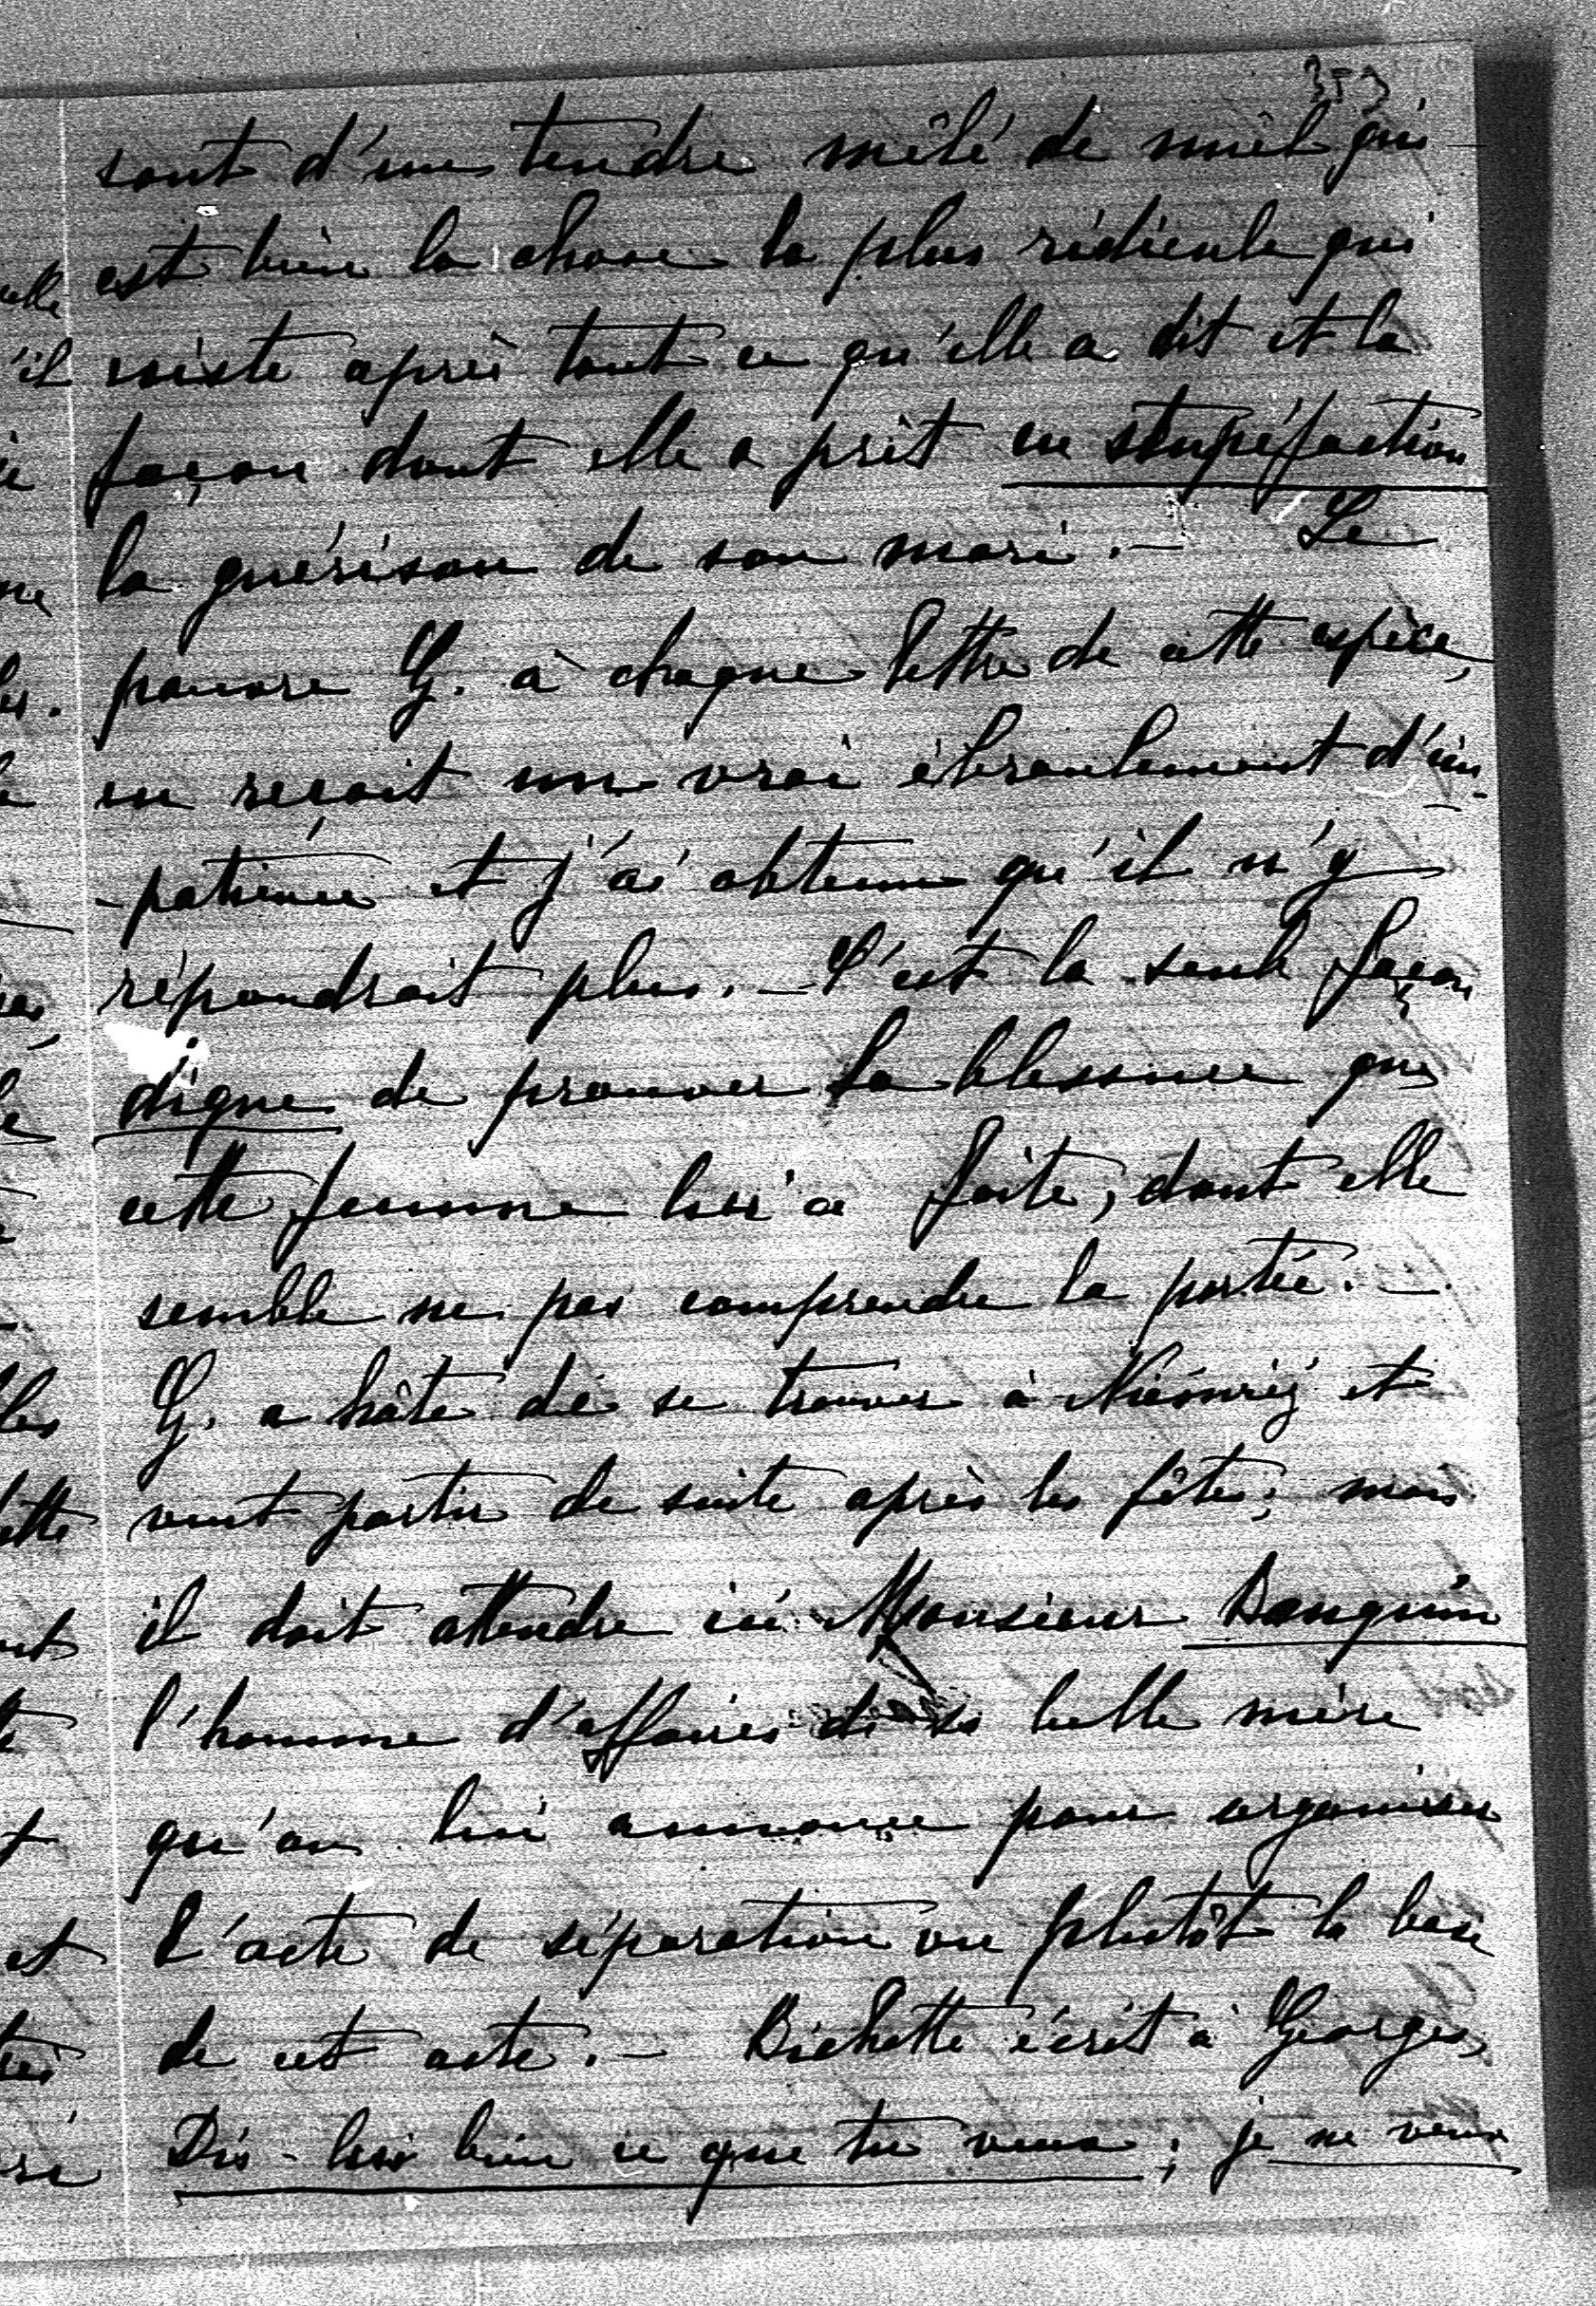 353
sont d'un tendre mêlé de miel qui
est bien la chose la plus ridicule qui
existe après tout ce qu'elle a dit et la
façon dont elle a prit en stupéfaction
la guérison de son mari. — Le
pauvre G. à chaque lettre de cette espèce,
en reçoit un vrai ébranlement d'im-
-patience et j'ai obtenu qu'il n'y
répondrait plus. — C'est la seule façon
digne de prouver la blessure que
cette femme lui a faite, dont elle
semble ne pas comprendre la portée. —
G. a hâte de se trouver à Nieśwież et
veut partir de suite après les fêtes; mais
il doit attendre ici Monsieur Danguin
l'homme d'affaires de sa belle mère
qu'on lui annonce pour organiser
l'acte de séparation ou plutôt la base
de cet acte. — Bichette écrit à Georges,
Dis-lui bien ce que tu veux; je ne veux